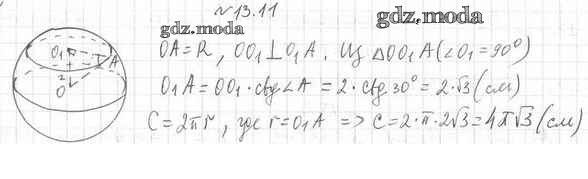 №13.11
gdz.moda
gdz.moda
OA=R, OO₁⊥O₁A. Из △OO₁A(∠O₁=90°)
O₁A=OO₁·ctg∠A=2·ctg30°=2·√3(см)
C=2πr, где r=O₁A => C=2·π·2√3=4π√3(см)
O₁
A
2
O